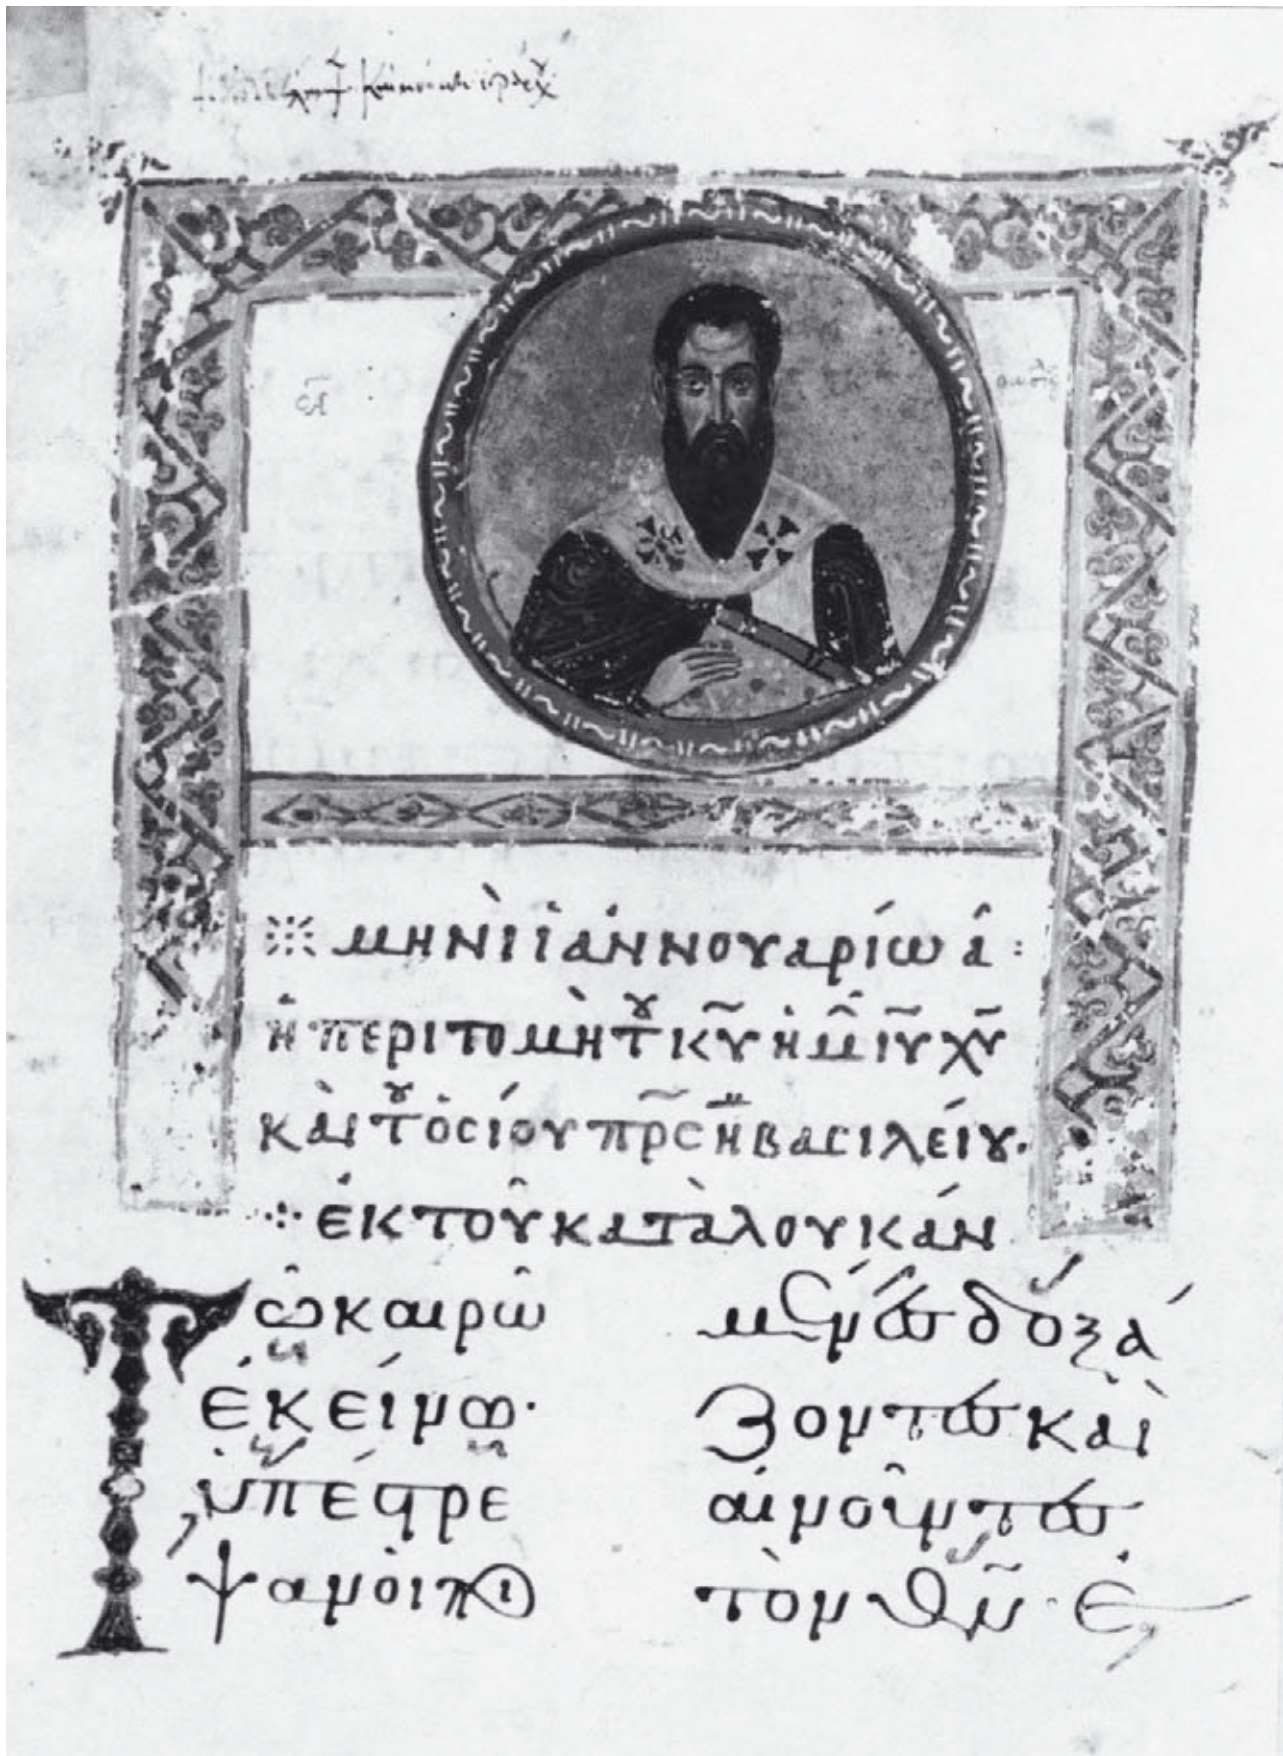 μηνὶ ἰαννουαρίω α̂ :
ἡ περιτομὴ τ̑ κ̅υ̅ ἡμ̑ ι̅υ̅ χ̅υ̅
καὶ τ̑ ὁσίου π̅ρ̅ς ἡ̅ βασιλείου.
ἐκ τοῦ κατὰ λουκάν
Τῶ καιρῶ
ἐκείνω·
ὑπέστρε
ψαν οἱ ποι
μένες δοξά
ζοντες καὶ
αἰνοῦντες
τὸν θ̅ν̅· ἐ